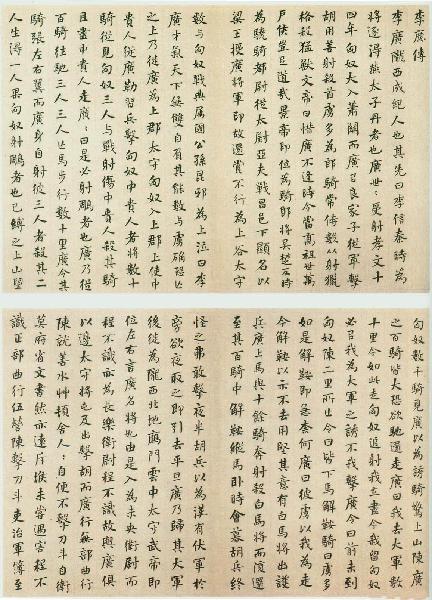 李廣傳
李廣隴西成紀人也其先曰李信秦時為
將逐得燕太子丹者也廣世〻受射孝文十
四年匈奴大入蕭關而廣以良家子從軍擊
胡用善射殺首虜多為郎騎常侍數從射獵
格殺猛獸文帝曰惜廣不逢時令當高祖世萬
戶侯豈足道哉景帝即位為騎郎將吳楚反時
為驍騎都尉從太尉亞夫戰昌邑下顯名以
梁王授廣將軍印故還賞不行為上谷太守
數與匈奴戰典屬國公孫昆邪為上泣曰李
廣才氣天下無雙自負其能數與虜确恐亡
之上乃徙廣為上郡太守匈奴入上郡上使中
貴人從廣勒習兵擊匈奴中貴人者將數十
騎從見匈奴三人與戰射傷中貴人殺其騎
且盡中貴人走廣〻曰是必射鵰者也廣乃從
百騎往馳三人三人亡馬步行數十里廣令其
騎張左右翼而廣身自射彼三人者殺其二
人生得一人果匈奴射鵰者也已縛之上山望
匈奴數千騎見廣以為誘騎驚上山陳廣
之百騎皆大恐欲馳還走廣曰我去大軍數
十里今如此走匈奴追射我立盡今我留匈奴
必以我為大軍之誘不我擊廣令曰前未到
匈奴陳二里所止令曰皆下馬解鞍騎曰虜多
如是解鞍即急柰何廣曰彼虜以我為走
今解鞍以示不去用堅其意有白馬將出護
兵廣上馬與十餘騎奔射殺白馬將而復還
至其百騎中解鞍縱馬臥時會暮胡兵終
怪之弗敢擊夜半胡兵以為漢有伏軍於
旁欲夜取之即引去平旦廣乃歸其大軍
後徙為隴西北地鴈門雲中太守武帝即
位左右言廣名將也由是入為未央衛尉而
程不識亦為長樂衛尉程不識故與廣俱
以邊太守將屯及出擊胡而廣行無部曲行
陳就善水草頓舍人〻自便不擊刀斗自衛
莫府省文書然亦遠斥堠未嘗遇害程不
識正部曲行伍營陳擊刀斗吏治軍簿至